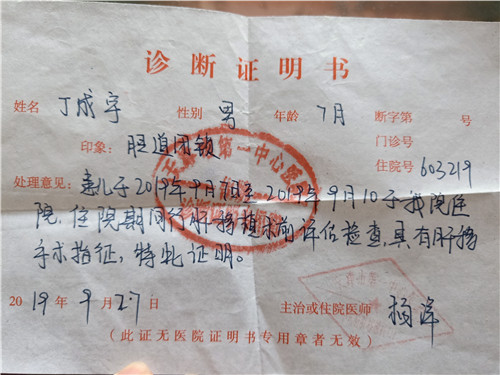 诊断证明书
姓名 丁成宇 性别 男 年龄 7月 断字第 号
门诊号
印象: 胆道闭锁 住院号 603219
处理意见: 患儿于2019年9月7日至2019年9月10于我院住
院,住院期间行肝移植术前评估检查,具有肝移
手术指征,特此证明。
2019年9月27日 主治或住院医师 杨洋
(此证无医院证明书专用章者无效)
第一中心医